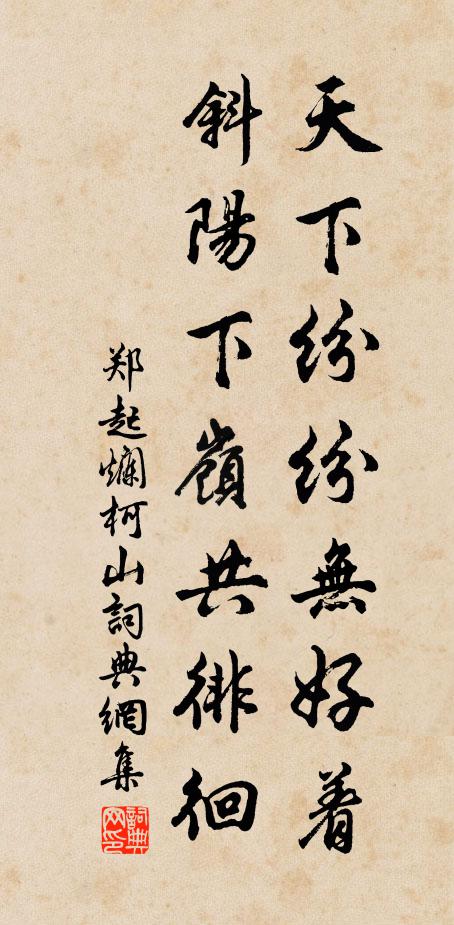 天下紛紛無好着
斜陽下嶺共徘徊
郑起爛柯山詞典網集
詞典网印